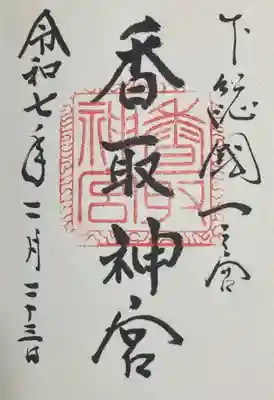 下総國一之宮
香取神宮
令和七年二月二十三日
香取神宮